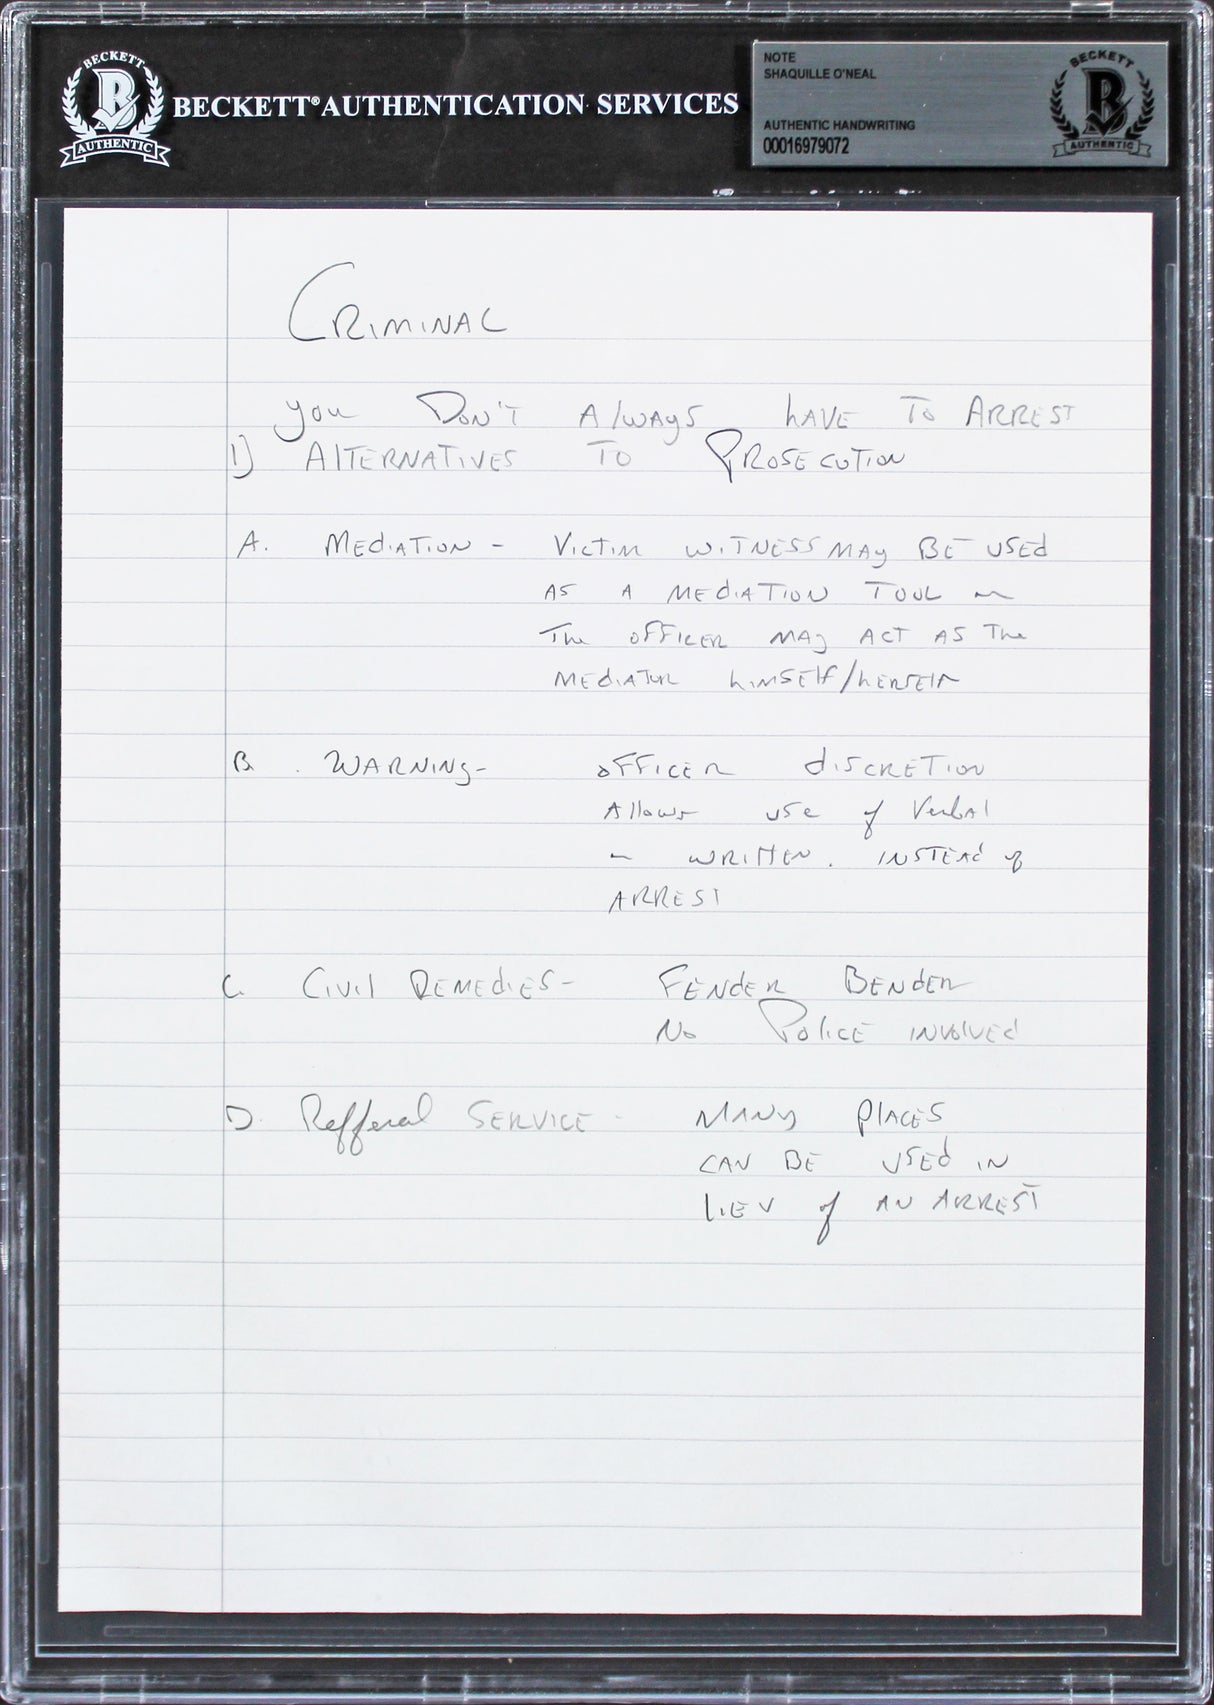 BECKETT
B
AUTHENTIC
BECKETT® AUTHENTICATION SERVICES
NOTE
SHAQUILLE O'NEAL
AUTHENTIC HANDWRITING
00016979072
BECKETT
B
AUTHENTIC
CRIMINAL
you DON'T AlWAyS hAVE TO ARREST
1) AlTERNATIVES TO PROSECUTION
A. MEdiATION - VICTIM WITNESS MAy BE USEd
AS A MEdIATION TOOL or
The OFFICER MAy ACT AS The
MEdIATOR hiMSElf/hERSElf
B. WARNINg- OFFICER diSCRETION
Allows use of Verbal
or WRITTEN. INSTEAd of
ARREST
C. CIVIl REMEdIES- FENdER BENdER
No POlICE INVOlVEd
D. Refferal SERVICE - MANy PlACES
CAN BE USEd IN
lIEV of AN ARREST